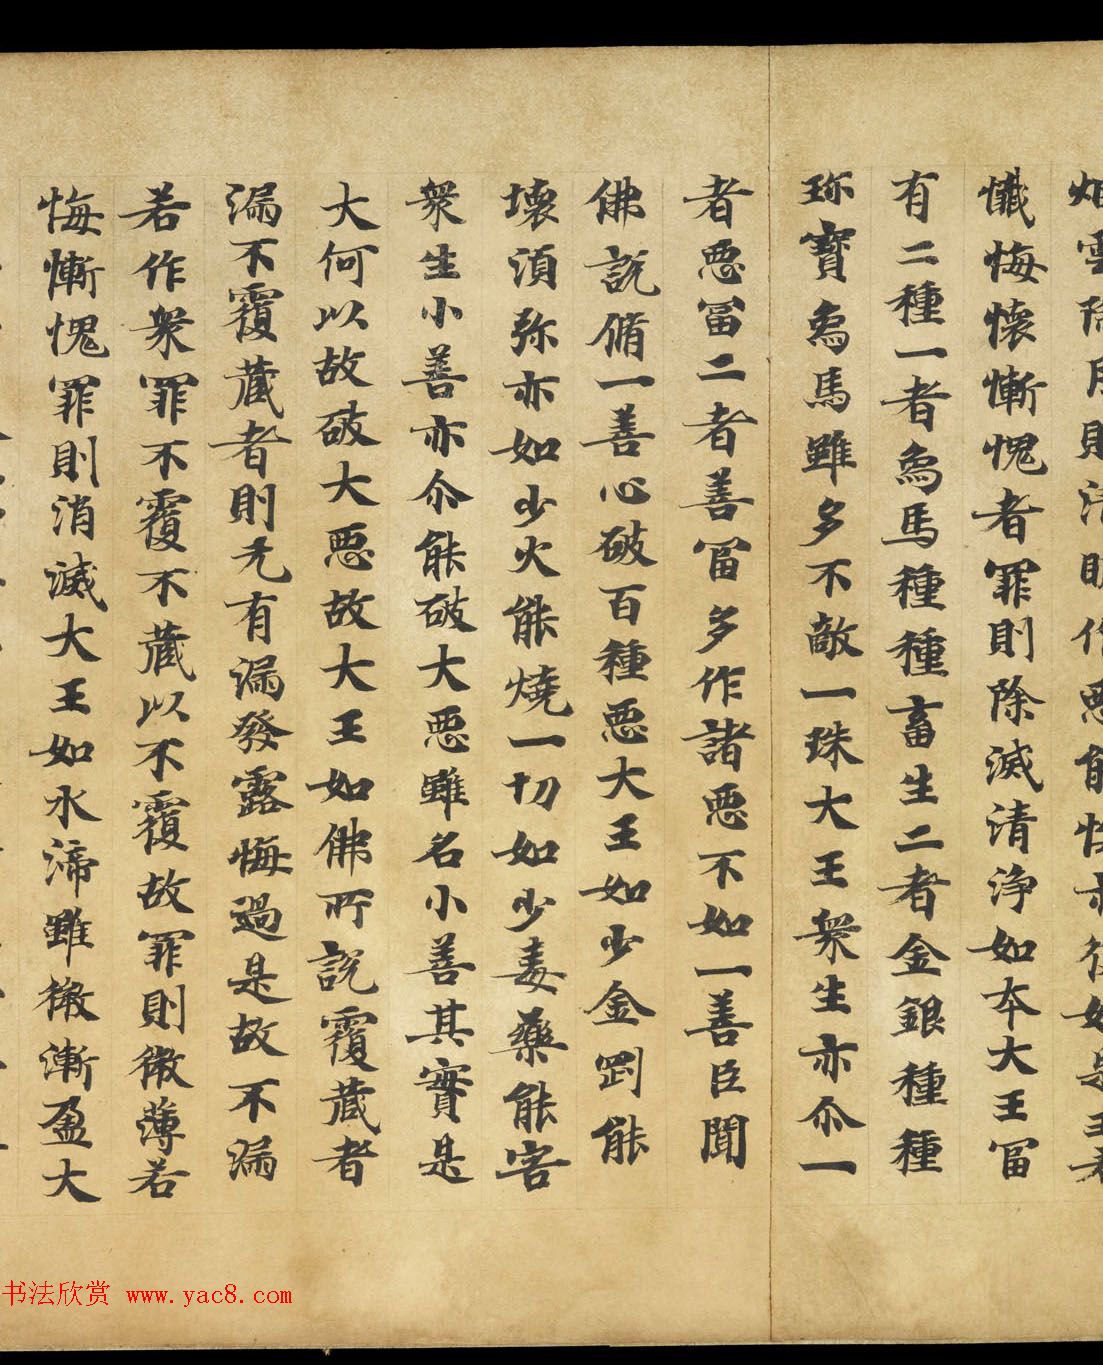 懺悔懷慚愧者罪則除滅清淨如本大王冨
有二種一者為馬種種畜生二者金銀種種
珎寶為馬雖多不敵一珠大王衆生亦尒一
者惡冨二者善冨多作諸惡不如一善臣聞
佛説脩一善心破百種惡大王如少金剛能
壞湏弥亦如少火能燒一切如少毒藥能害
衆生小善亦尒能破大惡雖名小善其實是
大何以故破大惡故大王如佛所説覆蔵者
漏不覆蔵者則无有漏發露悔過是故不漏
若作衆罪不覆不蔵以不覆故罪則微薄若
悔慚愧罪則消滅大王如水渧雖微漸盈大
书法欣赏 www.yac8.com